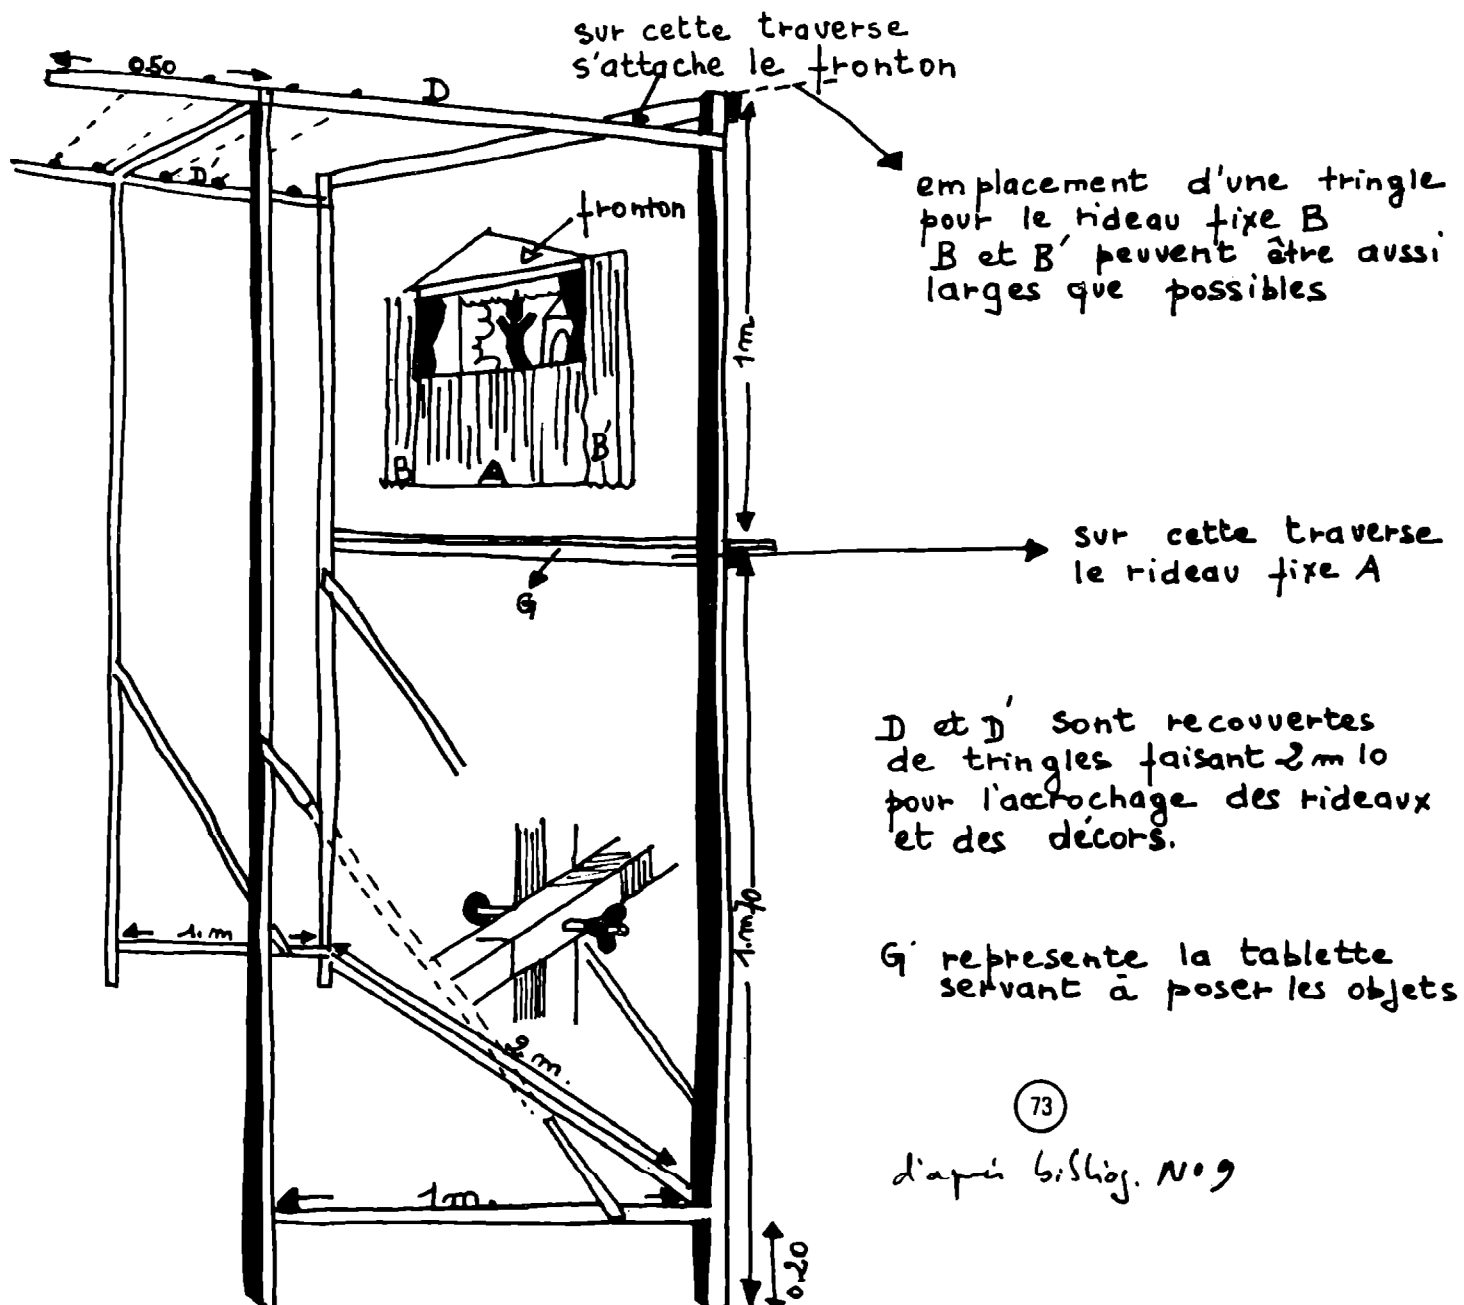 sur cette traverse
s'attache le fronton
0.50
D
emplacement d'une tringle
pour le rideau fixe B
B et B' peuvent être aussi
larges que possibles
D
fronton
1m
B
A
B'
sur cette traverse
le rideau fixe A
G
D et D' sont recouvertes
de tringles faisant 2m10
pour l'accrochage des rideaux
et des décors.
1.m
1.m70
G represente la tablette
servant à poser les objets
2 m.
73
d'après bibliog. N°9
1m.
0.20